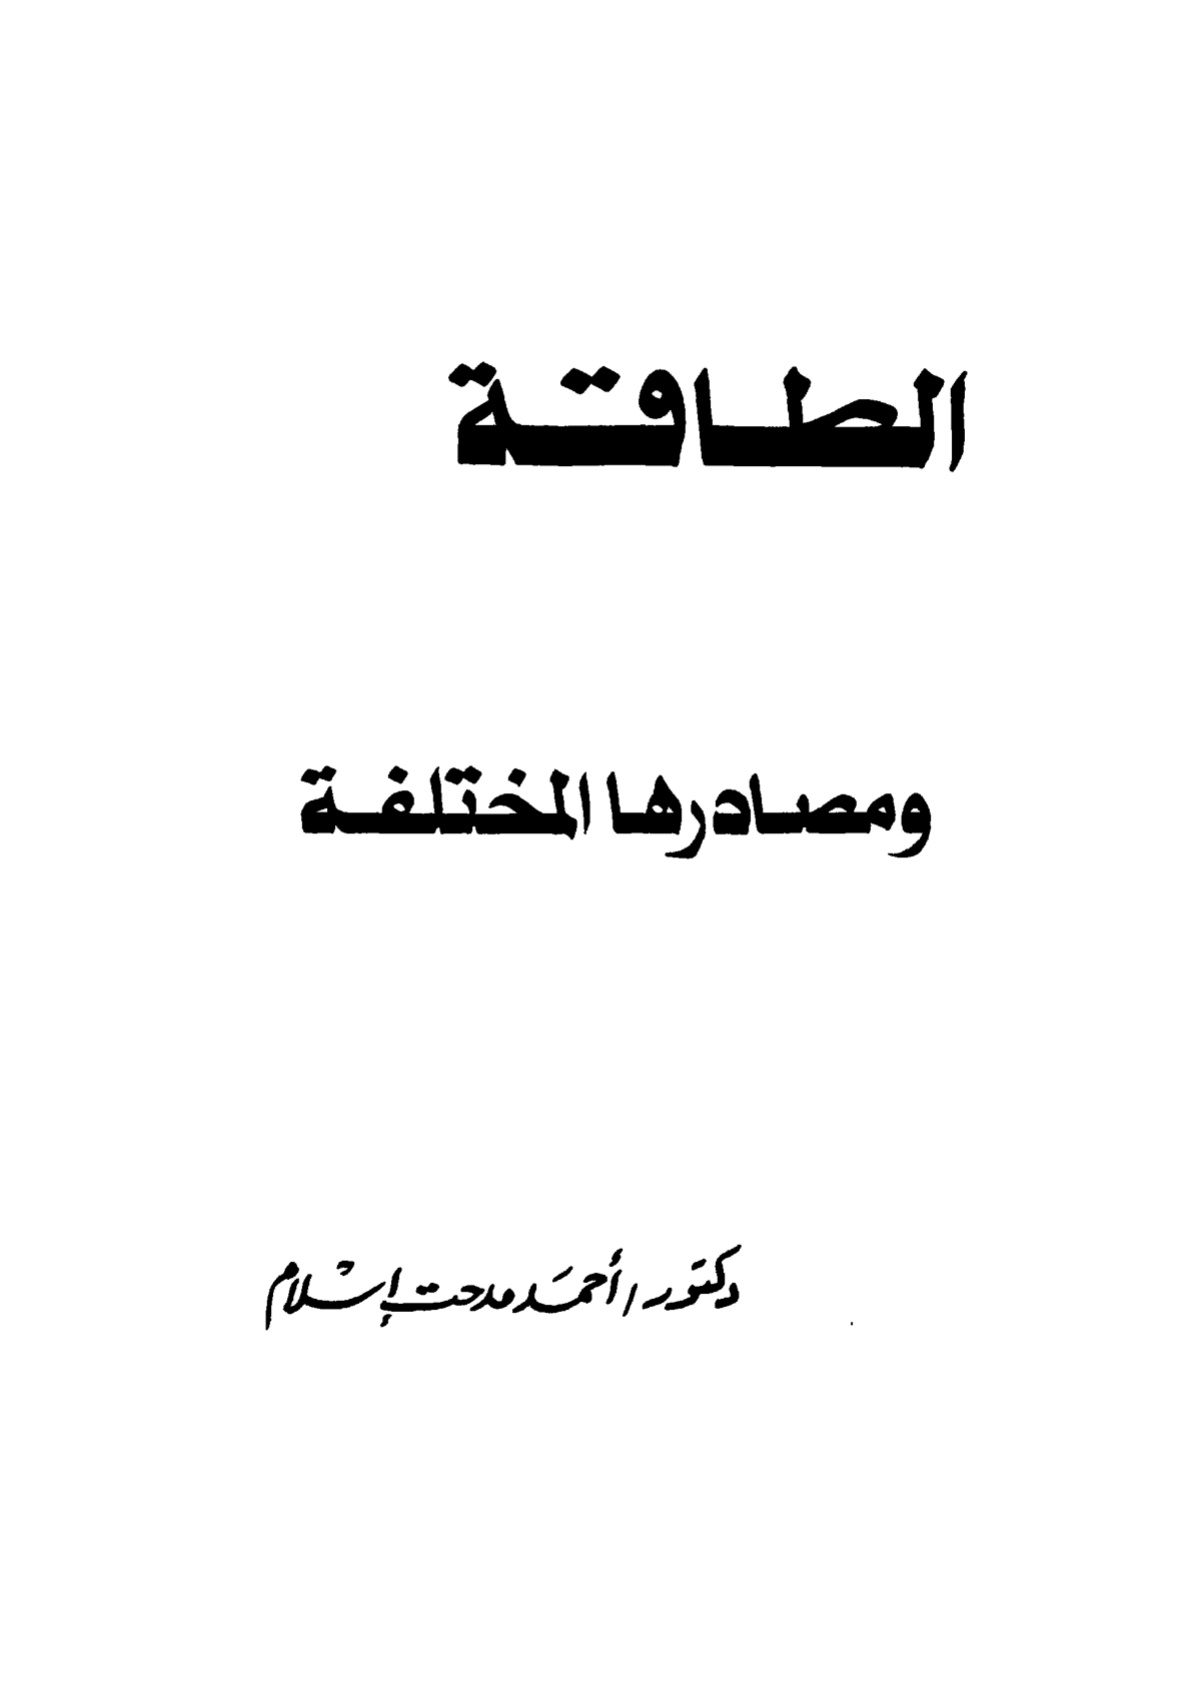 الطاقة
ومصادرها المختلفة
دكتور/ أحمد مدحت إسلام